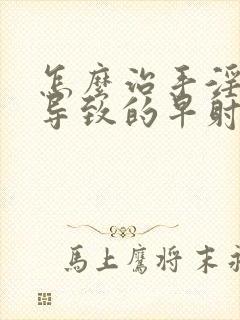 怎麼治手淫
导致的早射
馬上鷹将末